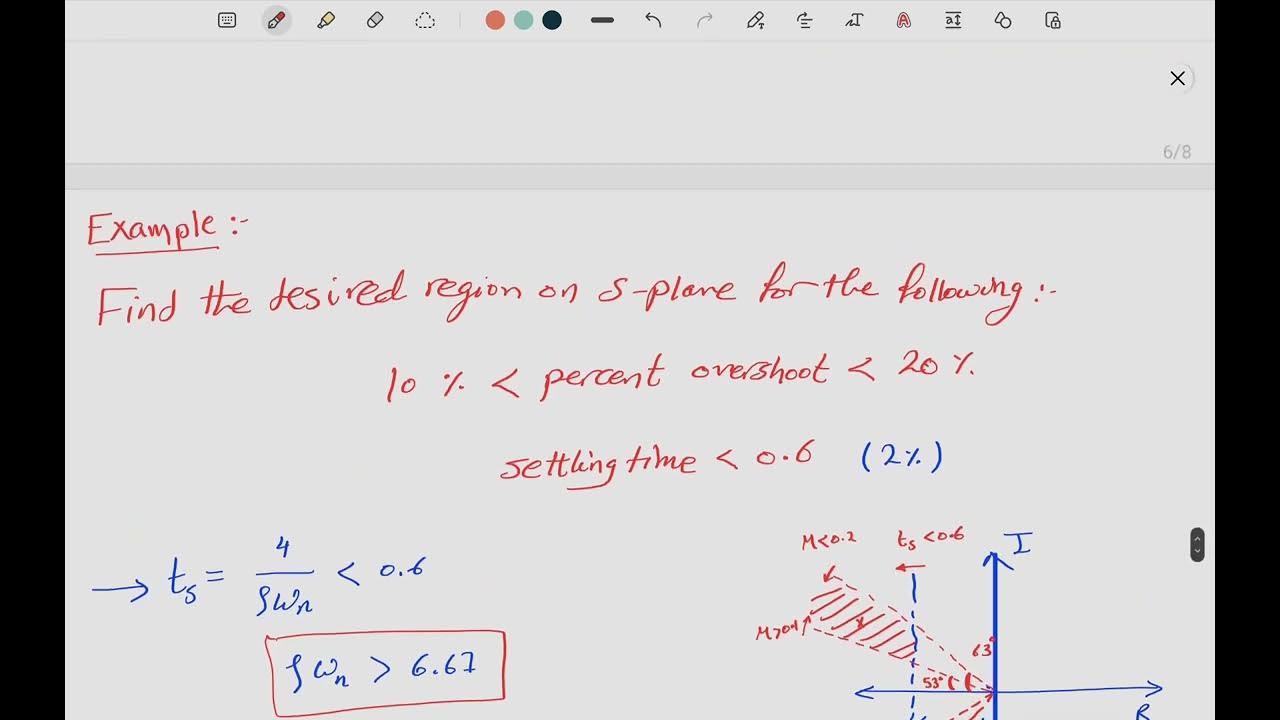 6/8
Example :-
Find the desired region on s-plane for the following :-
10 % < percent overshoot < 20 %.
settling time < 0.6 (2%)
→ ts = 4/ζωn < 0.6
ζωn > 6.67
M<0.2 ts <0.6 I
M>0.1
63°
53°
R